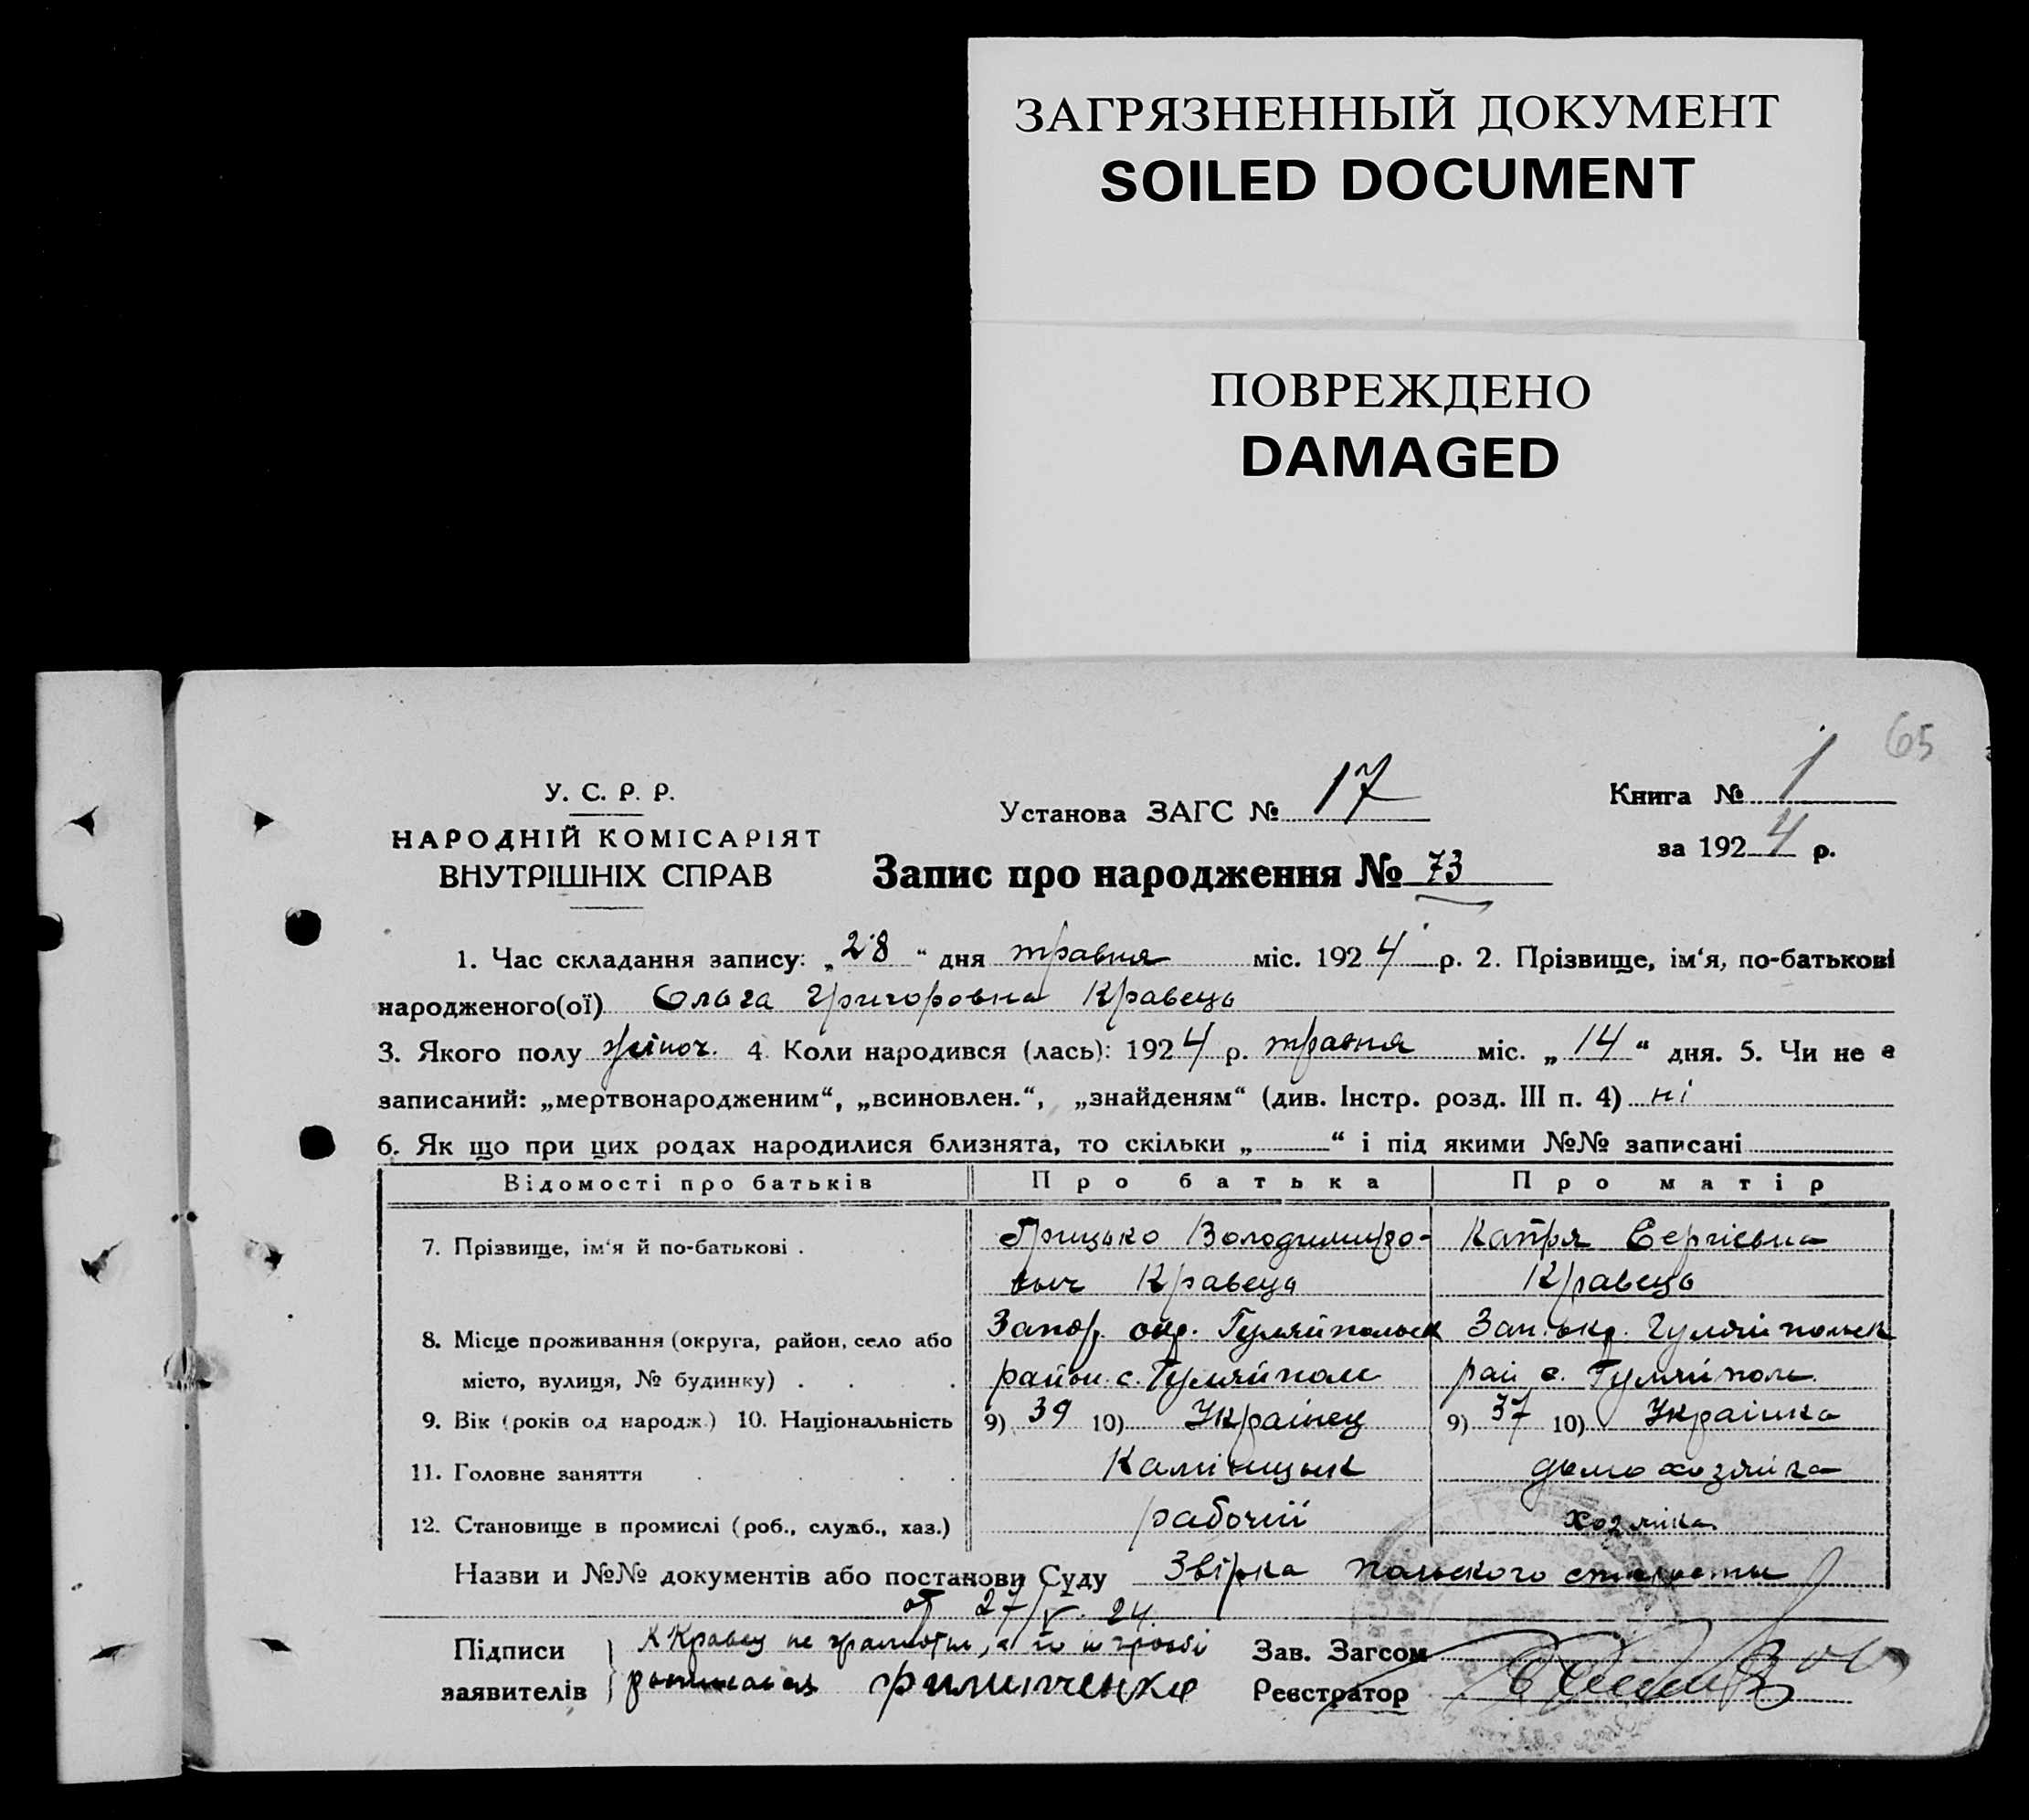 ЗАГРЯЗНЕННЫЙ ДОКУМЕНТ
SOILED DOCUMENT
ПОВРЕЖДЕНО
DAMAGED
65
У. С. Р. Р.
НАРОДНІЙ КОМІСАРІЯТ
ВНУТРІШНІХ СПРАВ
Установа ЗАГС № 17
Книга № 1
за 1924 р.
Запис про народження № 73
1. Час складання запису: „28“ дня травня міс. 1924 р. 2. Прізвище, ім‘я, по-батькові
народженого(ої) Ольга Григоровна Кравець
3. Якого полу жіноч. 4 Коли народився (лась): 1924 р. травня міс. „14“ дня. 5. Чи не є
записаний: „мертвонародженим“, „всиновлен.“, „знайденям“ (див. Інстр. розд. III п. 4) ні
6. Як що при цих родах народилися близнята, то скільки „ “ і під якими №№ записані
Відомості про батьків Про батька Про матір
7. Прізвище, ім‘я й по-батькові . Грицько Володимиро- Катря Сергієвна
вич Кравець Кравець
8. Місце проживання (округа, район, село або Запор. окр. Гуляйпольск Зап. окр. Гуляйпольск
місто, вулиця, № будинку) . . . район. с. Гуляйполе рай с. Гуляйполе
9. Вік (років од народж.) 10. Національність 9) 39 10) Українец 9) 37 10) Українка
11. Головне заняття . . . . . Камінщик домохозяйка
12. Становище в промислі (роб., служб., хаз.) рабочий хозяйка
Назви и №№ документів або постанови Суду Звірка польского
от 27/V. 24
Підписи Кравец не грамотн
заявителів Филипченко
Зав. Загсом
Реєстратор